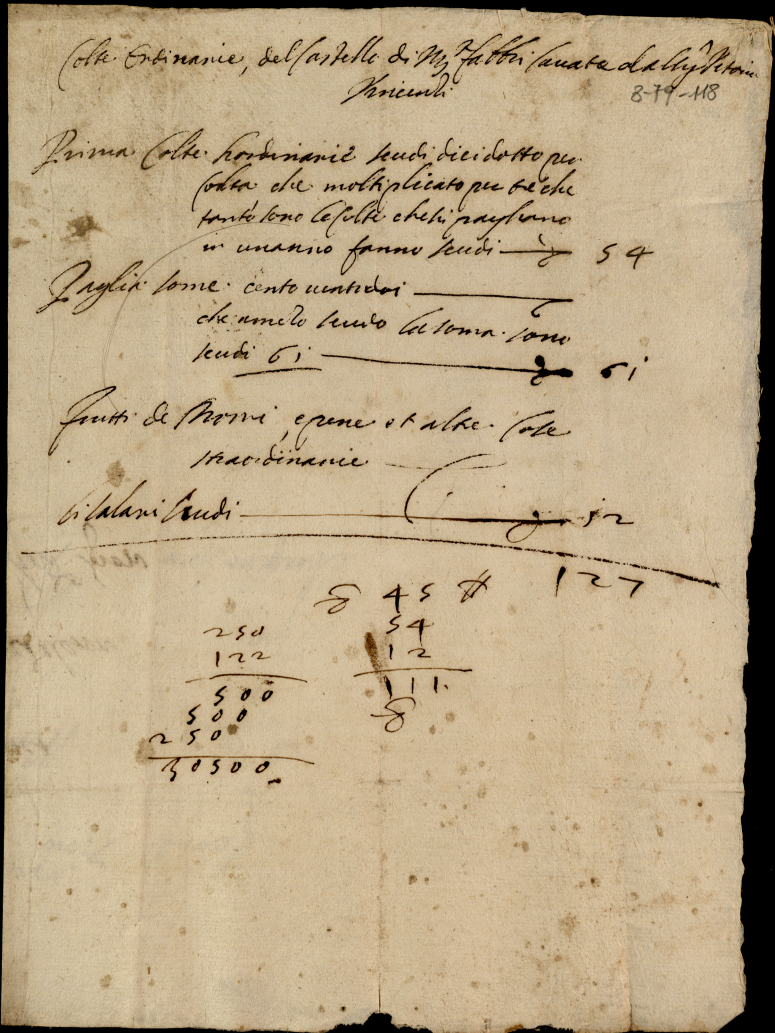 Colte Ordinarie, del Castello di M. fabbri Cavata dall
Vincenti
8-79-118
Prima Colte hordinarie scudi dicidotto per
Colta che moltiplicato per tre che
tanto sono le Colte che si paghano
in un anno fanno scudi 54
Paglia some cento ventidoi
che a mezo scudo la soma sono
scudi 61 61
frutti de Monti, e pene et altre Cose
straordinarie
Li salari scudi 12
127
45
54
12
111
250
122
500
500
250
30500